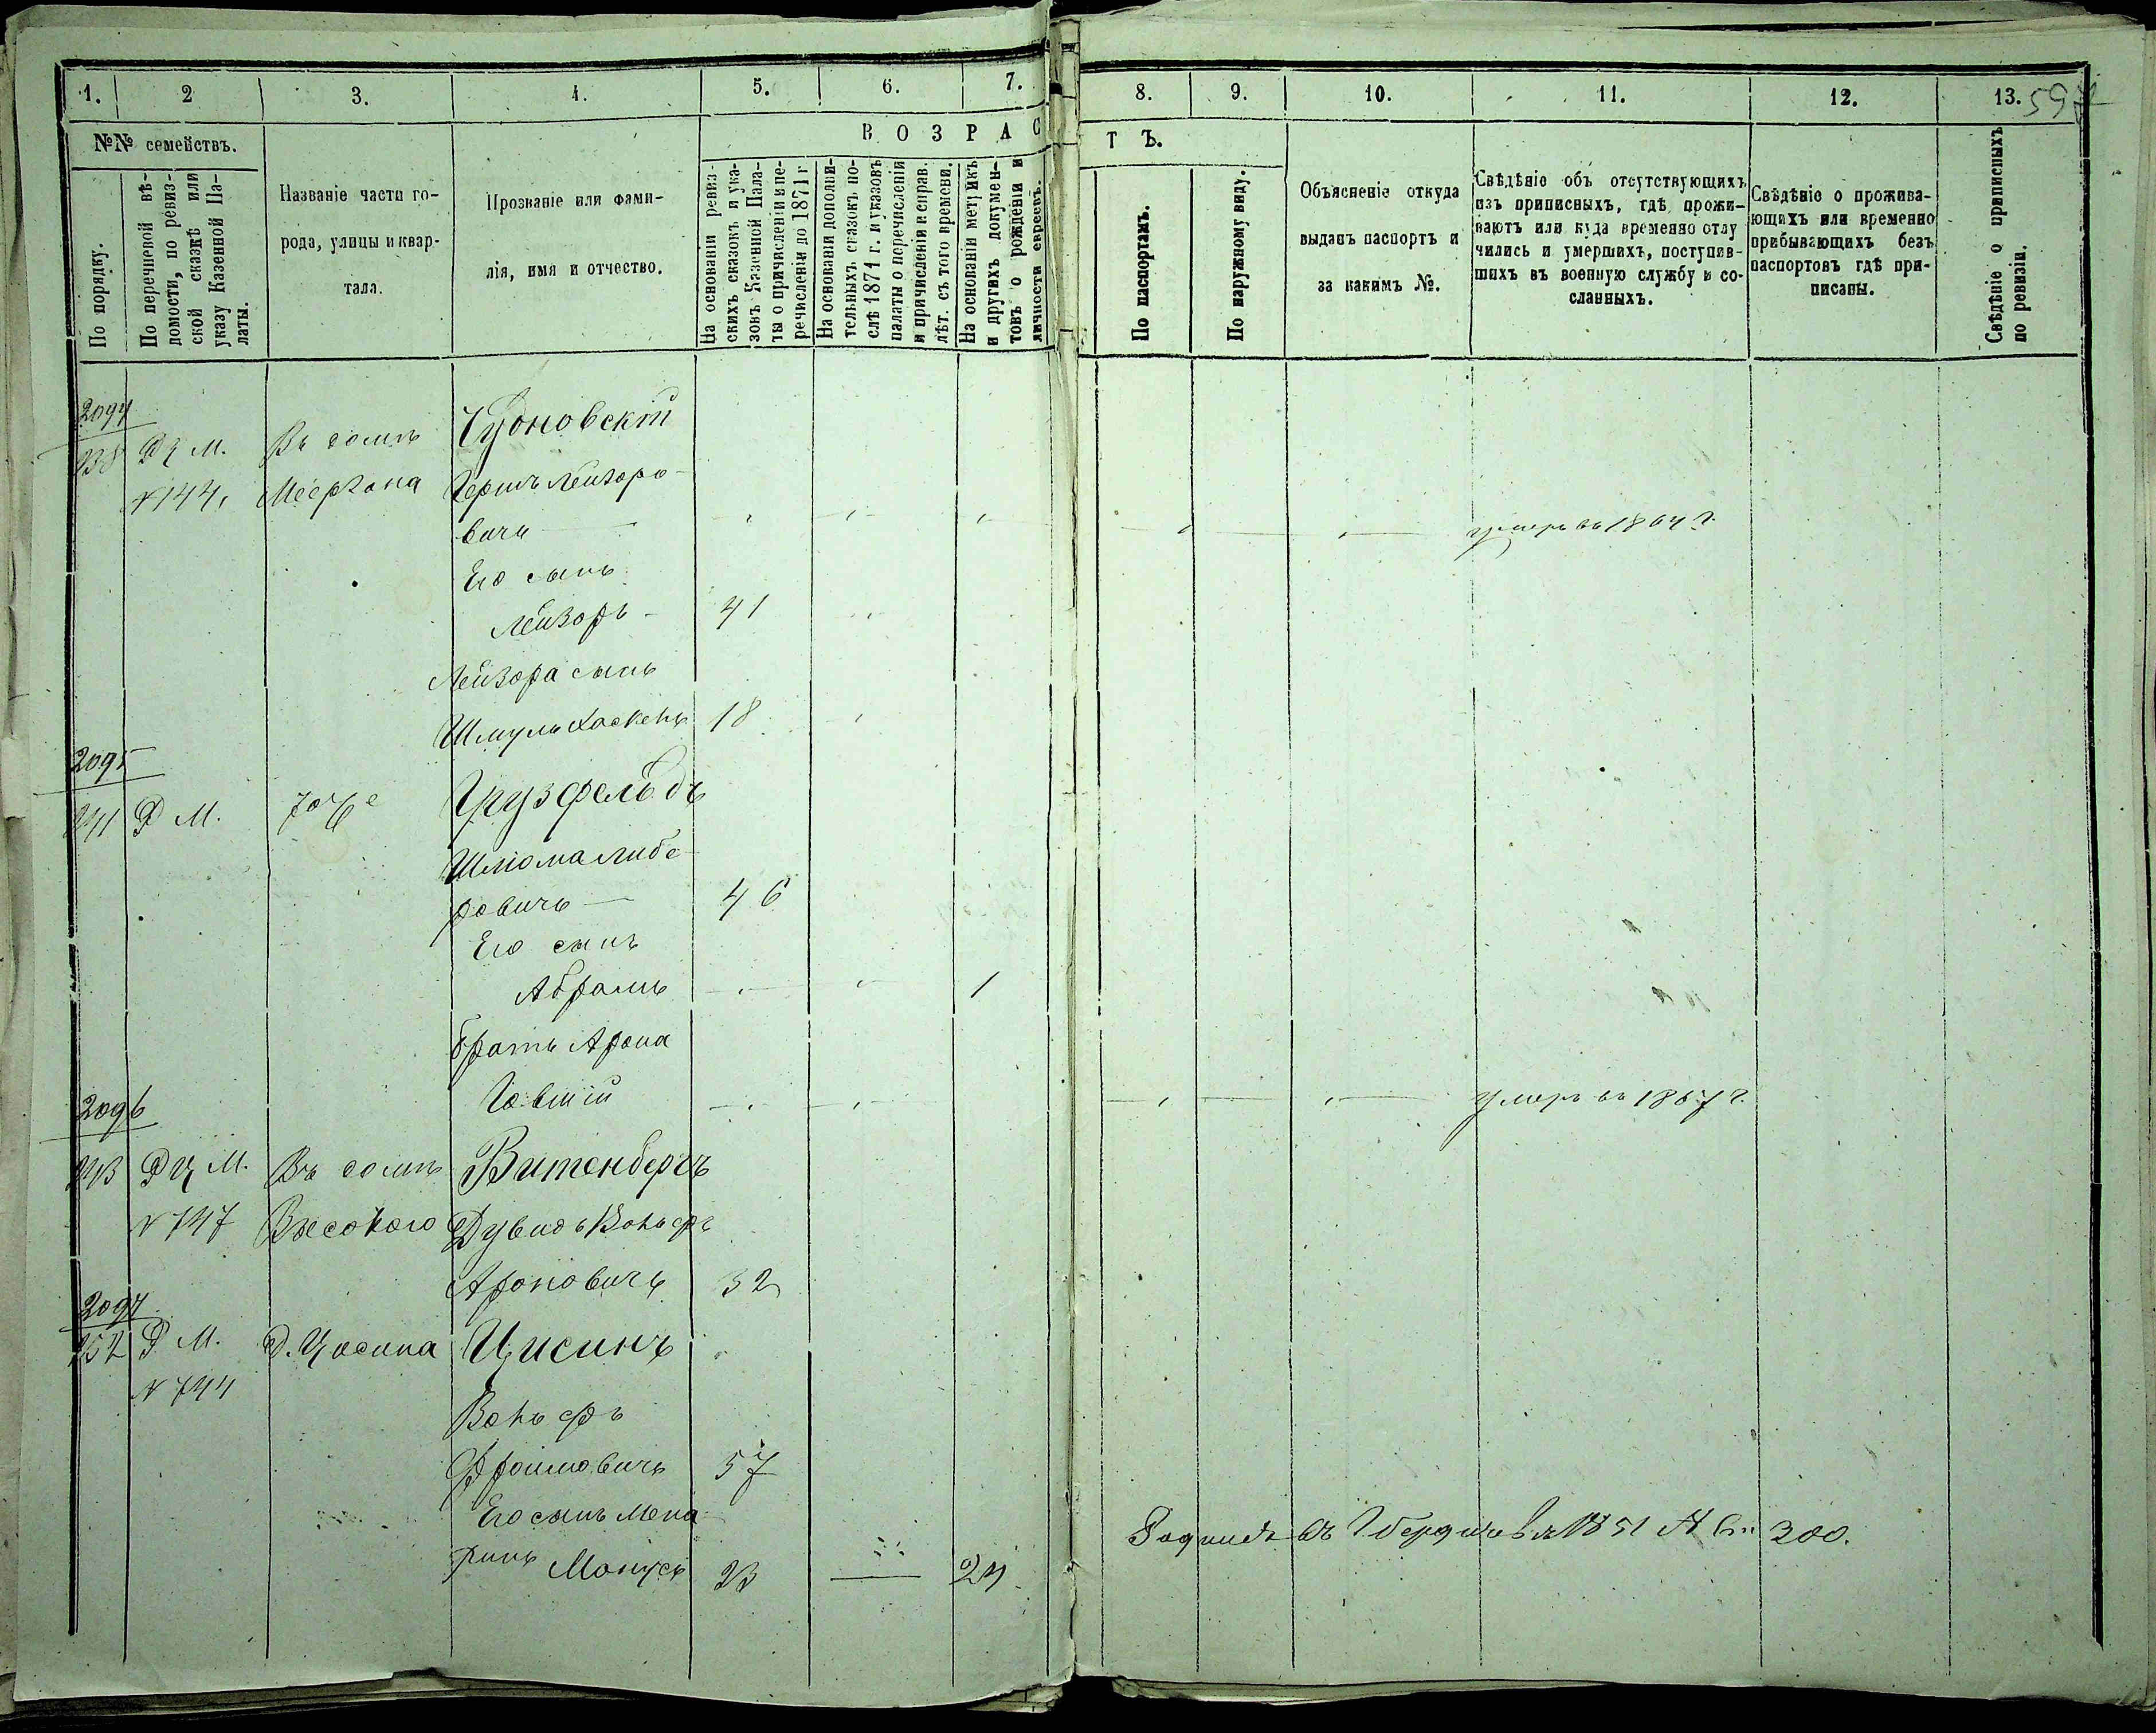 1. 2 3. 4. 5. 6. 7. 8. 9. 10. 11. 12. 13. 597
№№ семействъ.
По порядку.
По перечневой вѣ-
домости, по ревиз-
ской сказкѣ или
указу Казенной Па-
латы.
Названіе части го-
рода, улицы и квар-
тала.
Прозваніе или фами-
лія, имя и отчество.
ВОЗРАСТЪ.
На основаніи ревиз-
скихъ сказокъ и ука-
зовъ Казенной Пала-
ты о причисленіи и пе-
речисленіи до 1871 г
На основаніи дополни-
тельныхъ сказокъ по-
слѣ 1871 г. и указовъ
палаты о перечисленіи
и причисленіи и справ.
лѣт. съ того времени.
На основаніи метрикъ
и другихъ докумен-
товъ о рожденіи и
личности евреевъ.
По паспортамъ.
По наружному виду.
Объясненіе откуда
выданъ паспортъ и
за какимъ №.
Свѣдѣніе объ отсутствующихъ
изъ приписныхъ, гдѣ прожи-
ваютъ или куда временно отлу
чились и умершихъ, поступив-
шихъ въ военную службу и со-
сланныхъ.
Свѣдѣніе о прожива-
ющихъ или временно
прибывающихъ безъ
паспортовъ гдѣ при-
писаны.
Свѣдѣніе о приписныхъ
по ревизіи.
2094
238 Д Ц М. Въ домѣ Чудновскій
№ 144, Меергона Гершъ Лейзоро-
вичъ умеръ въ 1864 г.
Его сынъ
Лейзоръ 41
Лейзора сынъ
Шмуль Хаскель 18
2095
241 Д М. тоже Грузфельдъ
Шлиома Либе-
ровичъ 46
Его сынъ
Абрамъ 1
братъ Арона
Говшій умеръ въ 1867 г.
2096
243 Д Ц М. Въ домѣ Витенбергъ
№ 747 Высокого Дувидъ Вольфъ
Ароновичъ 32
2097
252 Д М. д. Цисина Цисинъ
№ 744
Вольфъ
Фроимовичъ 57
Его сынъ Мена-
Монусъ 23 24 300.